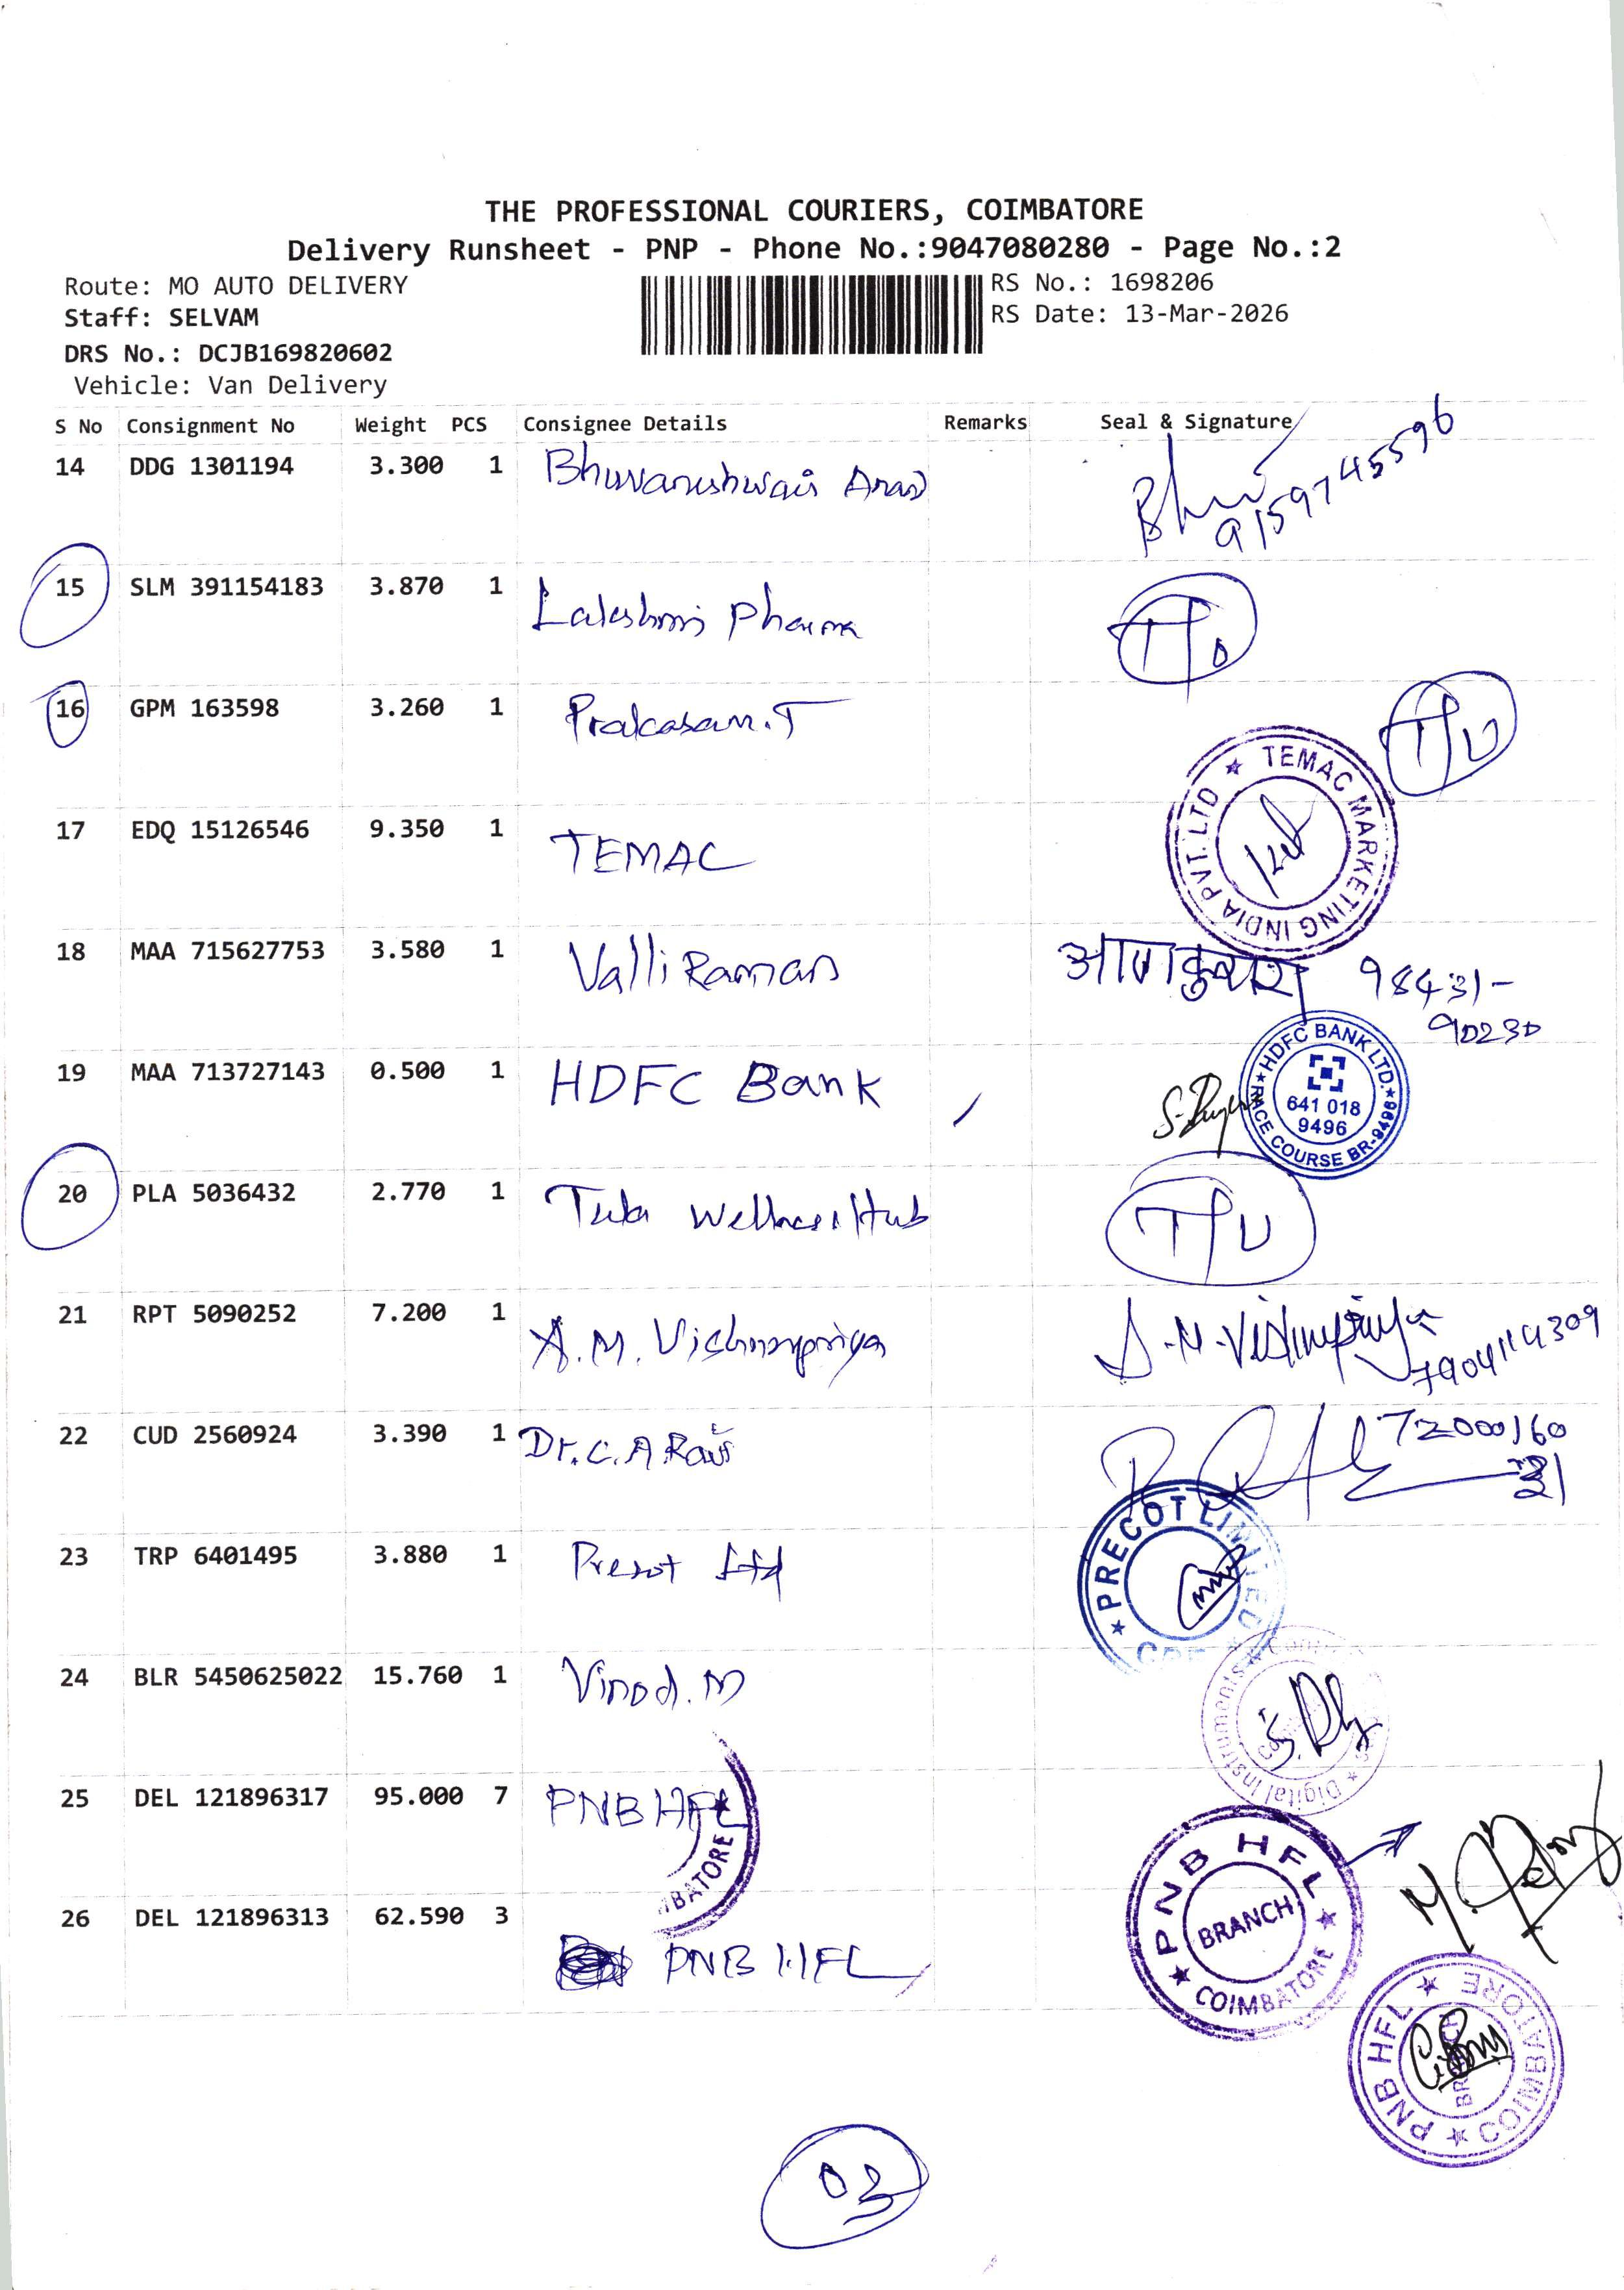 THE PROFESSIONAL COURIERS, COIMBATORE
Delivery Runsheet - PNP - Phone No.:9047080280 - Page No.:2
Route: MO AUTO DELIVERY
RS No.: 1698206
Staff: SELVAM
RS Date: 13-Mar-2026
DRS No.: DCJB169820602
Vehicle: Van Delivery
S No Consignment No Weight PCS Consignee Details Remarks Seal & Signature
14 DDG 1301194 3.300 1 Bhuvaneshwari 9159745596
15 SLM 391154183 3.870 1 Lakshmi Pharma
16 GPM 163598 3.260 1 Prakasam.T T/U
17 EDQ 15126546 9.350 1 TEMAC
★ TEMAC MARKETING INDIA PVT. LTD
18 MAA 715627753 3.580 1 Valli Raman 98431-
90230
19 MAA 713727143 0.500 1 HDFC Bank
★ HDFC BANK LTD. ★ RACE COURSE BR-9496
641 018
9496
20 PLA 5036432 2.770 1 Wellness Hub T/U
21 RPT 5090252 7.200 1 A.M. Vishnupriya
7904114309
22 CUD 2560924 3.390 1 Dr. C. A. 72000160
23 TRP 6401495 3.880 1 Precot Ltd
★ PRECOT LIMITED ★
24 BLR 5450625022 15.760 1 Vinod.M
Digital Instruments
25 DEL 121896317 95.000 7 PNB HFL
BATORE ★
★ PNB HFL ★ COIMBATORE
BRANCH
26 DEL 121896313 62.590 3 PNB HFL
★ PNB HFL ★ COIMBATORE
BRANCH
03